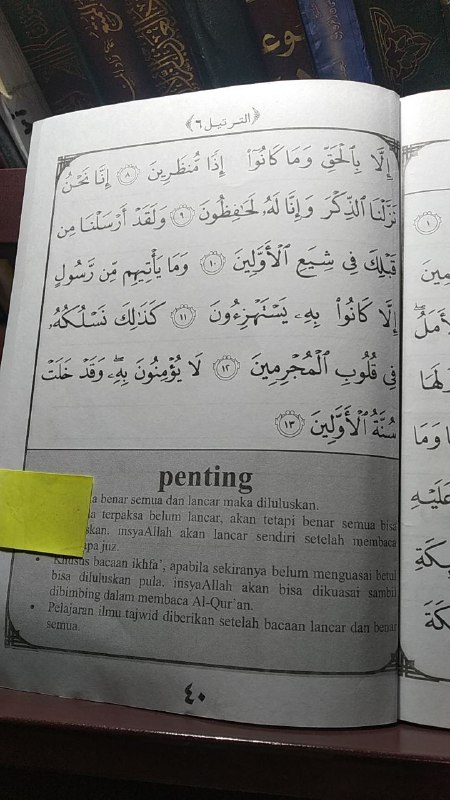 ﴿الترتيل ٦﴾
إِلَّا بِالْحَقِّ وَمَا كَانُوٓا۟ إِذًا مُّنظَرِينَ ٨ إِنَّا نَحْنُ
نَزَّلْنَا ٱلذِّكْرَ وَإِنَّا لَهُۥ لَحَٰفِظُونَ ٩ وَلَقَدْ أَرْسَلْنَا مِن
قَبْلِكَ فِى شِيَعِ ٱلْأَوَّلِينَ ١٠ وَمَا يَأْتِيهِم مِّن رَّسُولٍ
إِلَّا كَانُوا۟ بِهِۦ يَسْتَهْزِءُونَ ١١ كَذَٰلِكَ نَسْلُكُهُۥ
فِى قُلُوبِ ٱلْمُجْرِمِينَ ١٢ لَا يُؤْمِنُونَ بِهِۦ ۖ وَقَدْ خَلَتْ
سُنَّةُ ٱلْأَوَّلِينَ ١٣
penting
benar semua dan lancar maka diluluskan.
terpaksa belum lancar, akan tetapi benar semua bisa
insyaAllah akan lancar sendiri setelah membaca
juz.
• Khusus bacaan ikhfa', apabila sekiranya belum menguasai betul
bisa diluluskan pula, insyaAllah akan bisa dikuasai sambil
dibimbing dalam membaca Al-Qur'an.
• Pelajaran ilmu tajwid diberikan setelah bacaan lancar dan benar
semua.
٤٠
١
وَمَا
عَلَيْهِ